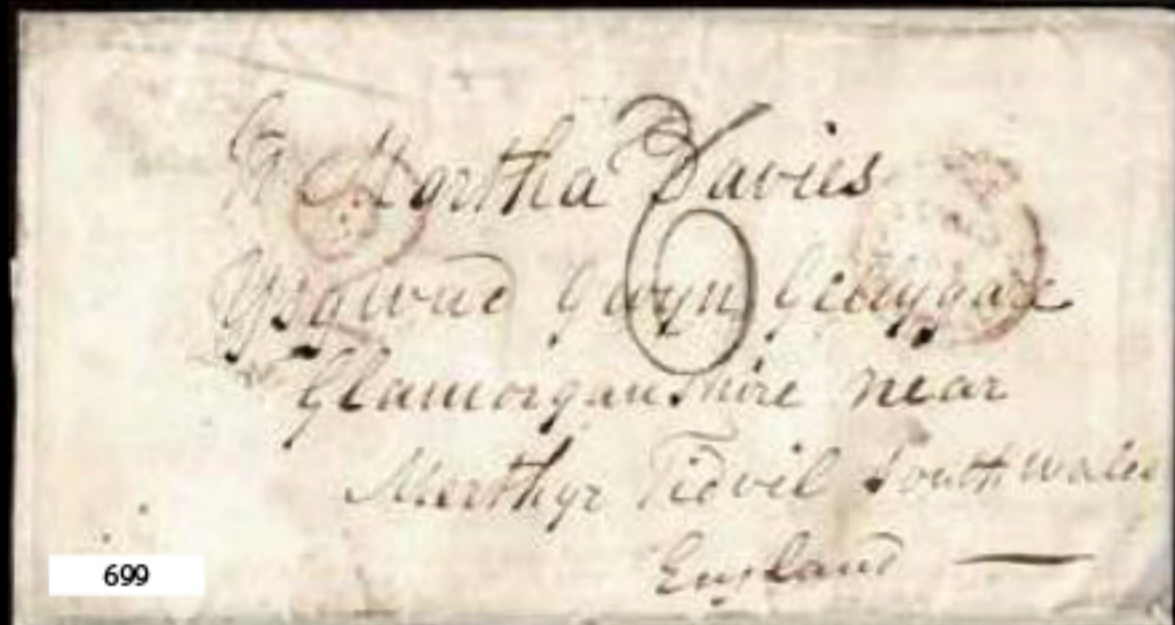 To Martha Davies
Gwyn Gellygare
Glamorganshire near
Merthyr Tidvil South Wales
England —
699